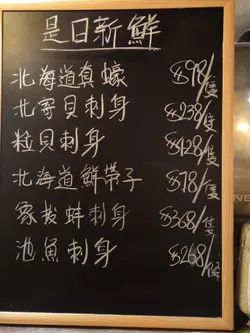 是日新鮮
北海道真蠔 $98/隻
北寄貝刺身 $238/隻
粒貝刺身 $128/隻
北海道鮮帶子 $78/隻
象拔蚌刺身 $368/隻
池魚刺身 $268/條